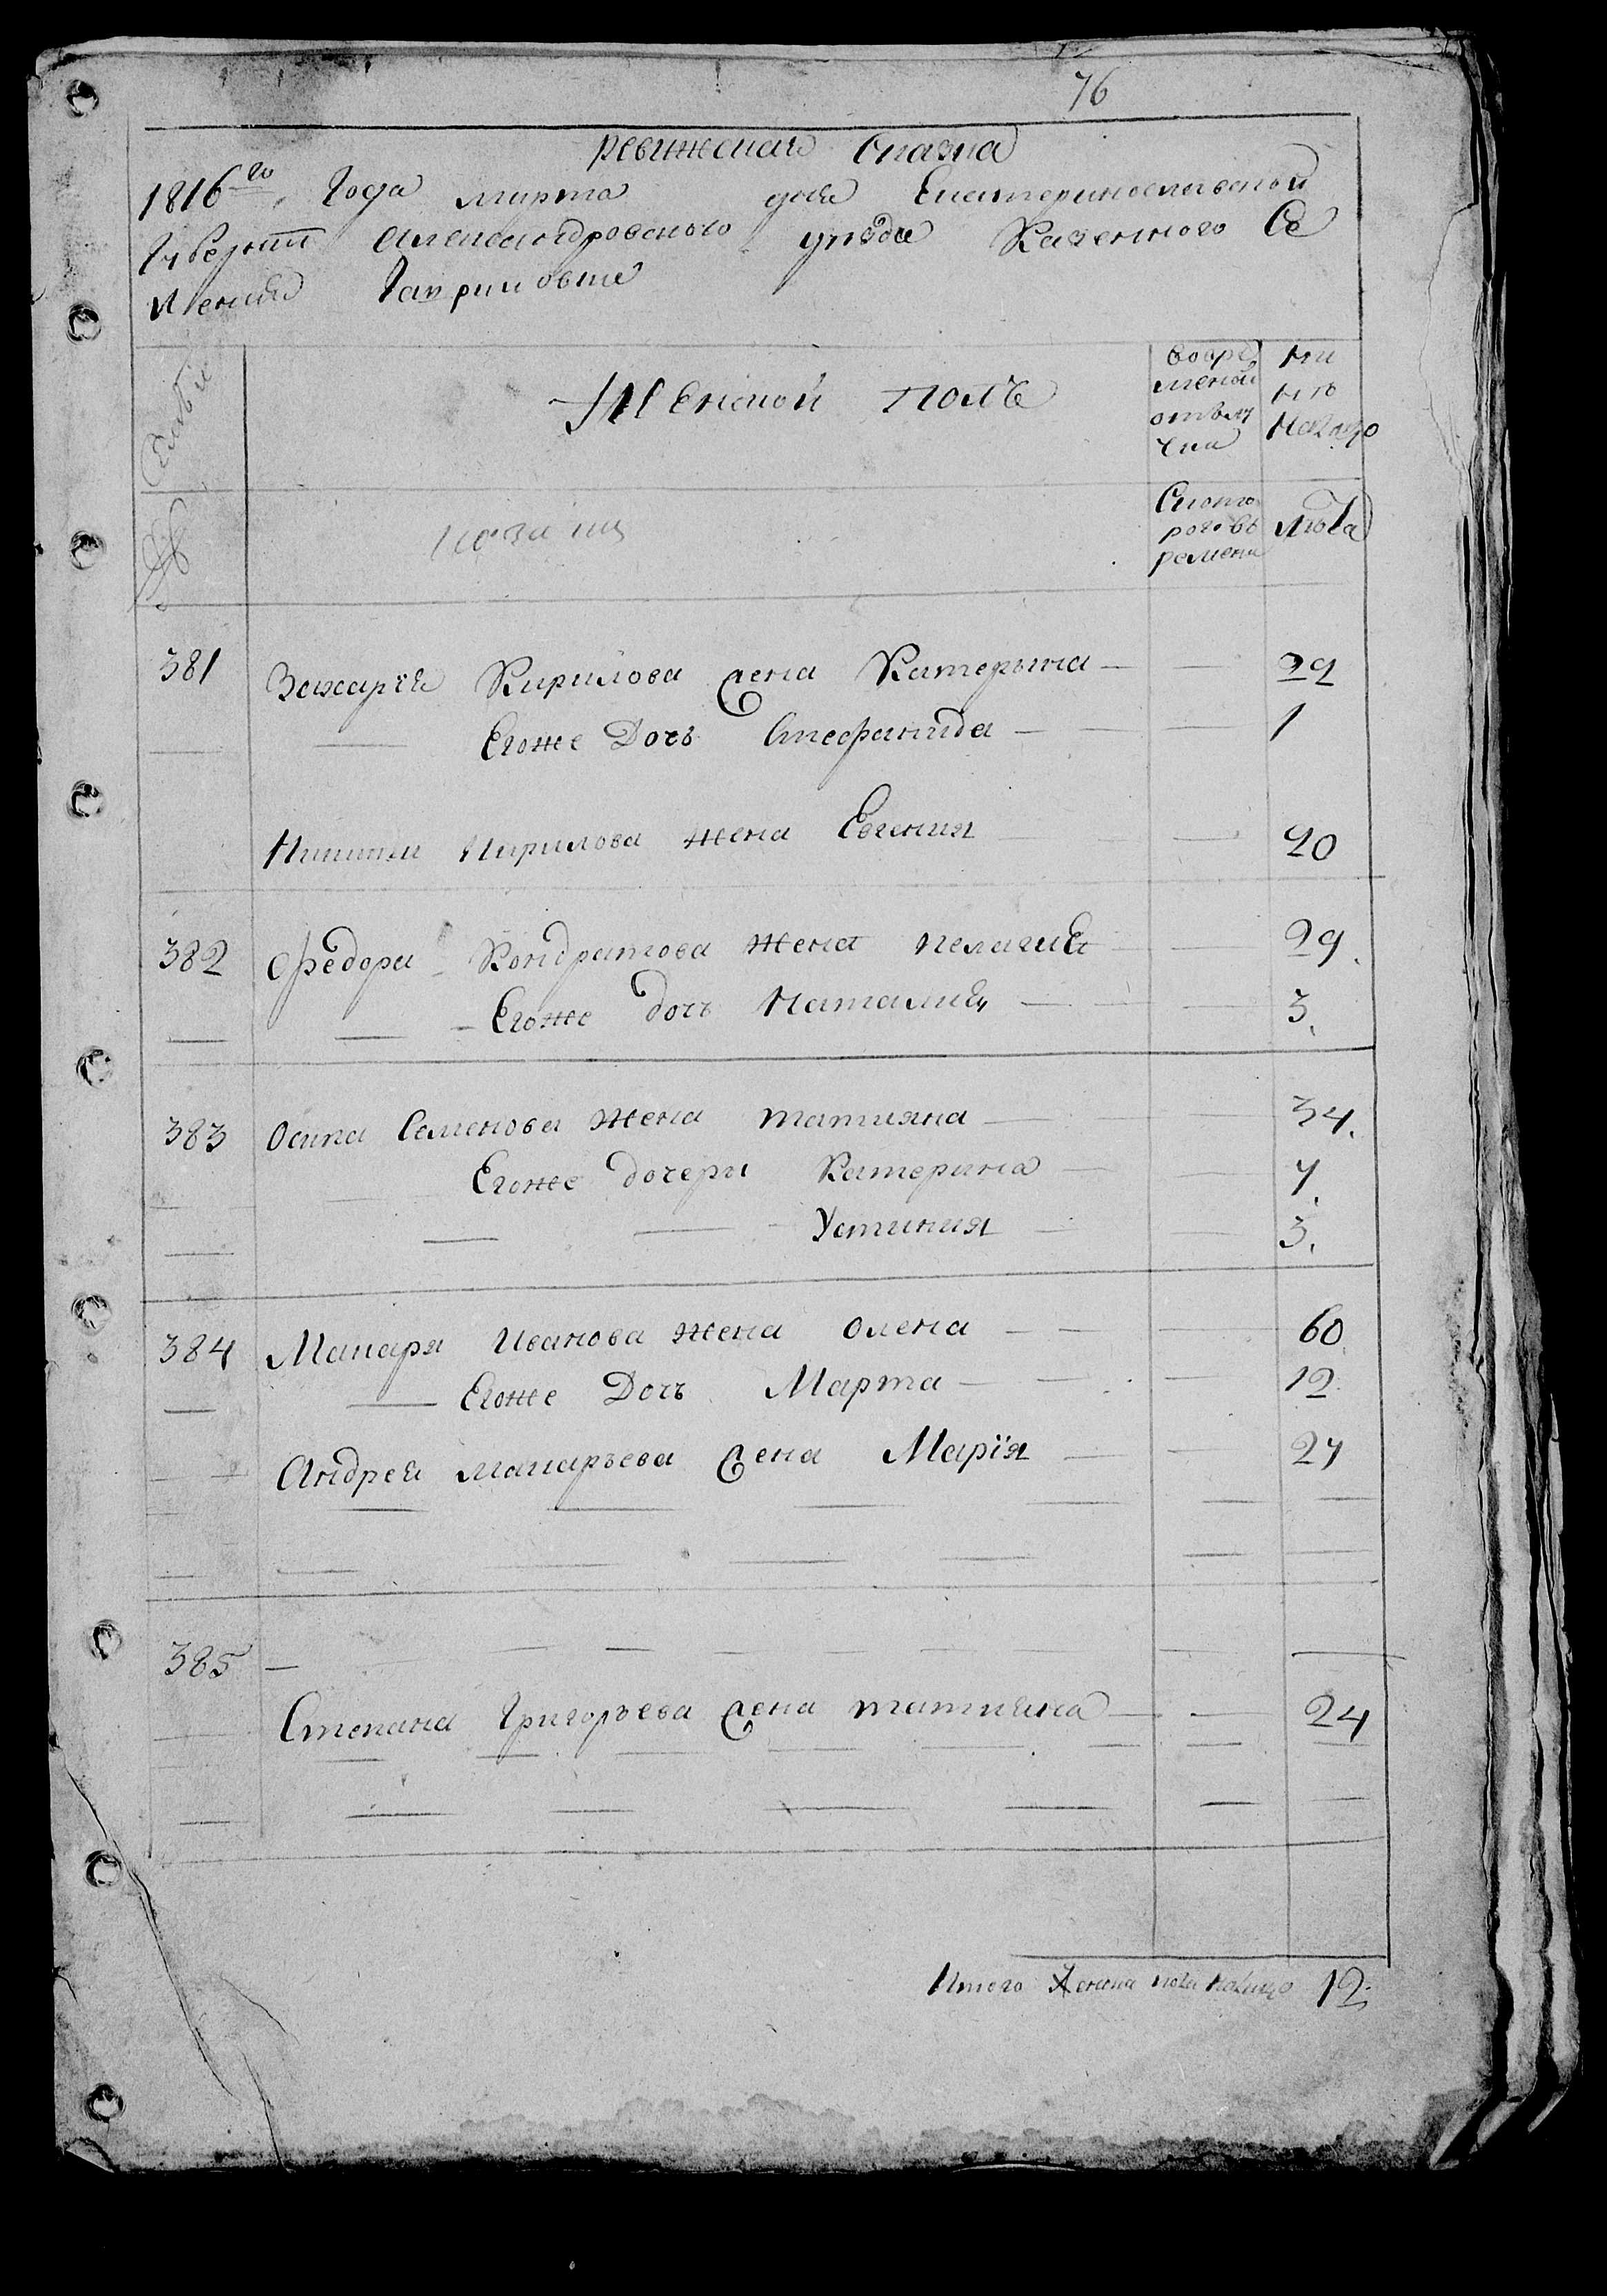 76
ревижская Сказка
1816го Года марта дня Екатеринославской
Губернии Александровского уезда Казенного Се
Ления Гавриловки
Семьи Женской полъ Вовре ны
менной не
отлу На лицо
чки
№ козачий Скотор
роговъ Лета
ремени
381 Захария Кирилова жена Катерына — — 22
— — Егоже Дочь Стефанида — — 1
Никиты Кирилова жена Евгения — — 20
382 Федора Кондратова жена пелагия — 29.
— — Егоже дочь Наталия — — 3.
383 Осипа Семенова жена татияна — — 34.
— — Егоже дочери Катерина — — 7.
— — — Устиния — — 3.
384 Макаря Иванова жена Олена — — 60.
— — Егоже Дочь Марта — — 12.
Андрея макарьева жена Марїя — — 27
385 —
Степана Григорьева жена татияна — — 24
Итого Женска пола налицо 12.